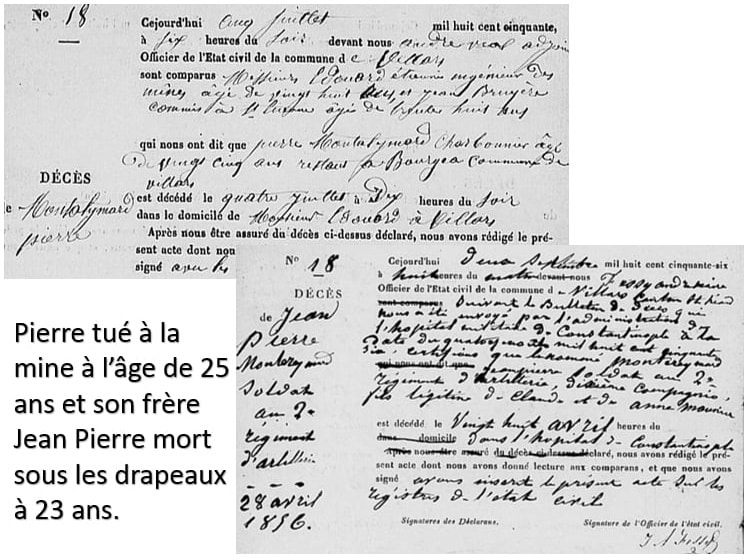 No 18
Cejourd'hui cinq juillet mil huit cent cinquante,
à six heures du soir devant nous andre vial adjoin
Officier de l'Etat civil de la commune de Villars
sont comparus Messieurs Edouard étienne ingénieur des
mines âgé de vingt huit ans et jean Bruyere
commis à St âgé de trente huit ans
qui nous ont dit que pierre Montalymard Charbonnier âgé
de vingt cinq ans restant a Bourgea commune de
villars
DÉCÈS
est décédé le quatre juillet à Dix heures du soir
de Montalymard
dans le domicile de Monsieur Edouard à Villars
pierre
Après nous être assuré du décès ci-dessus déclaré, nous avons rédigé le pré-
sent acte dont nous
signé avec les
No 18
DÉCÈS
de Jean
Pierre
Monteymard
Soldat
au 2e
régiment
d'artillerie
28 avril
1856.
Cejourd'hui deux Septembre mil huit cent cinquante-six
à huit heures du matin devant nous
Officier de l'Etat civil de la commune de Villars canton St
sont comparus Suivant le Bulletin de Décès qui
nous a été envoyé par l'administration de
l'hopital militaire de Constantinople à la
date du mil huit cent cinquante
Six, certifions que le nommé monteymard
qui nous ont dit que jean pierre Soldat au 2e
régiment d'artillerie, dixième compagnie,
fils légitime de Claude et de anne
est décédé le Vingt huit avril heures du
dans domicile dans l'hopital de Constantinople
Après nous être assuré du décès ci-dessus déclaré, nous avons rédigé le pré-
sent acte dont nous avons donné lecture aux comparans, et que nous avons
signé avons inseré le présent acte Sur les
registres de l'état civil
Signatures des Déclarans. Signature de l'Officier de l'état civil.
Pierre tué à la
mine à l’âge de 25
ans et son frère
Jean Pierre mort
sous les drapeaux
à 23 ans.